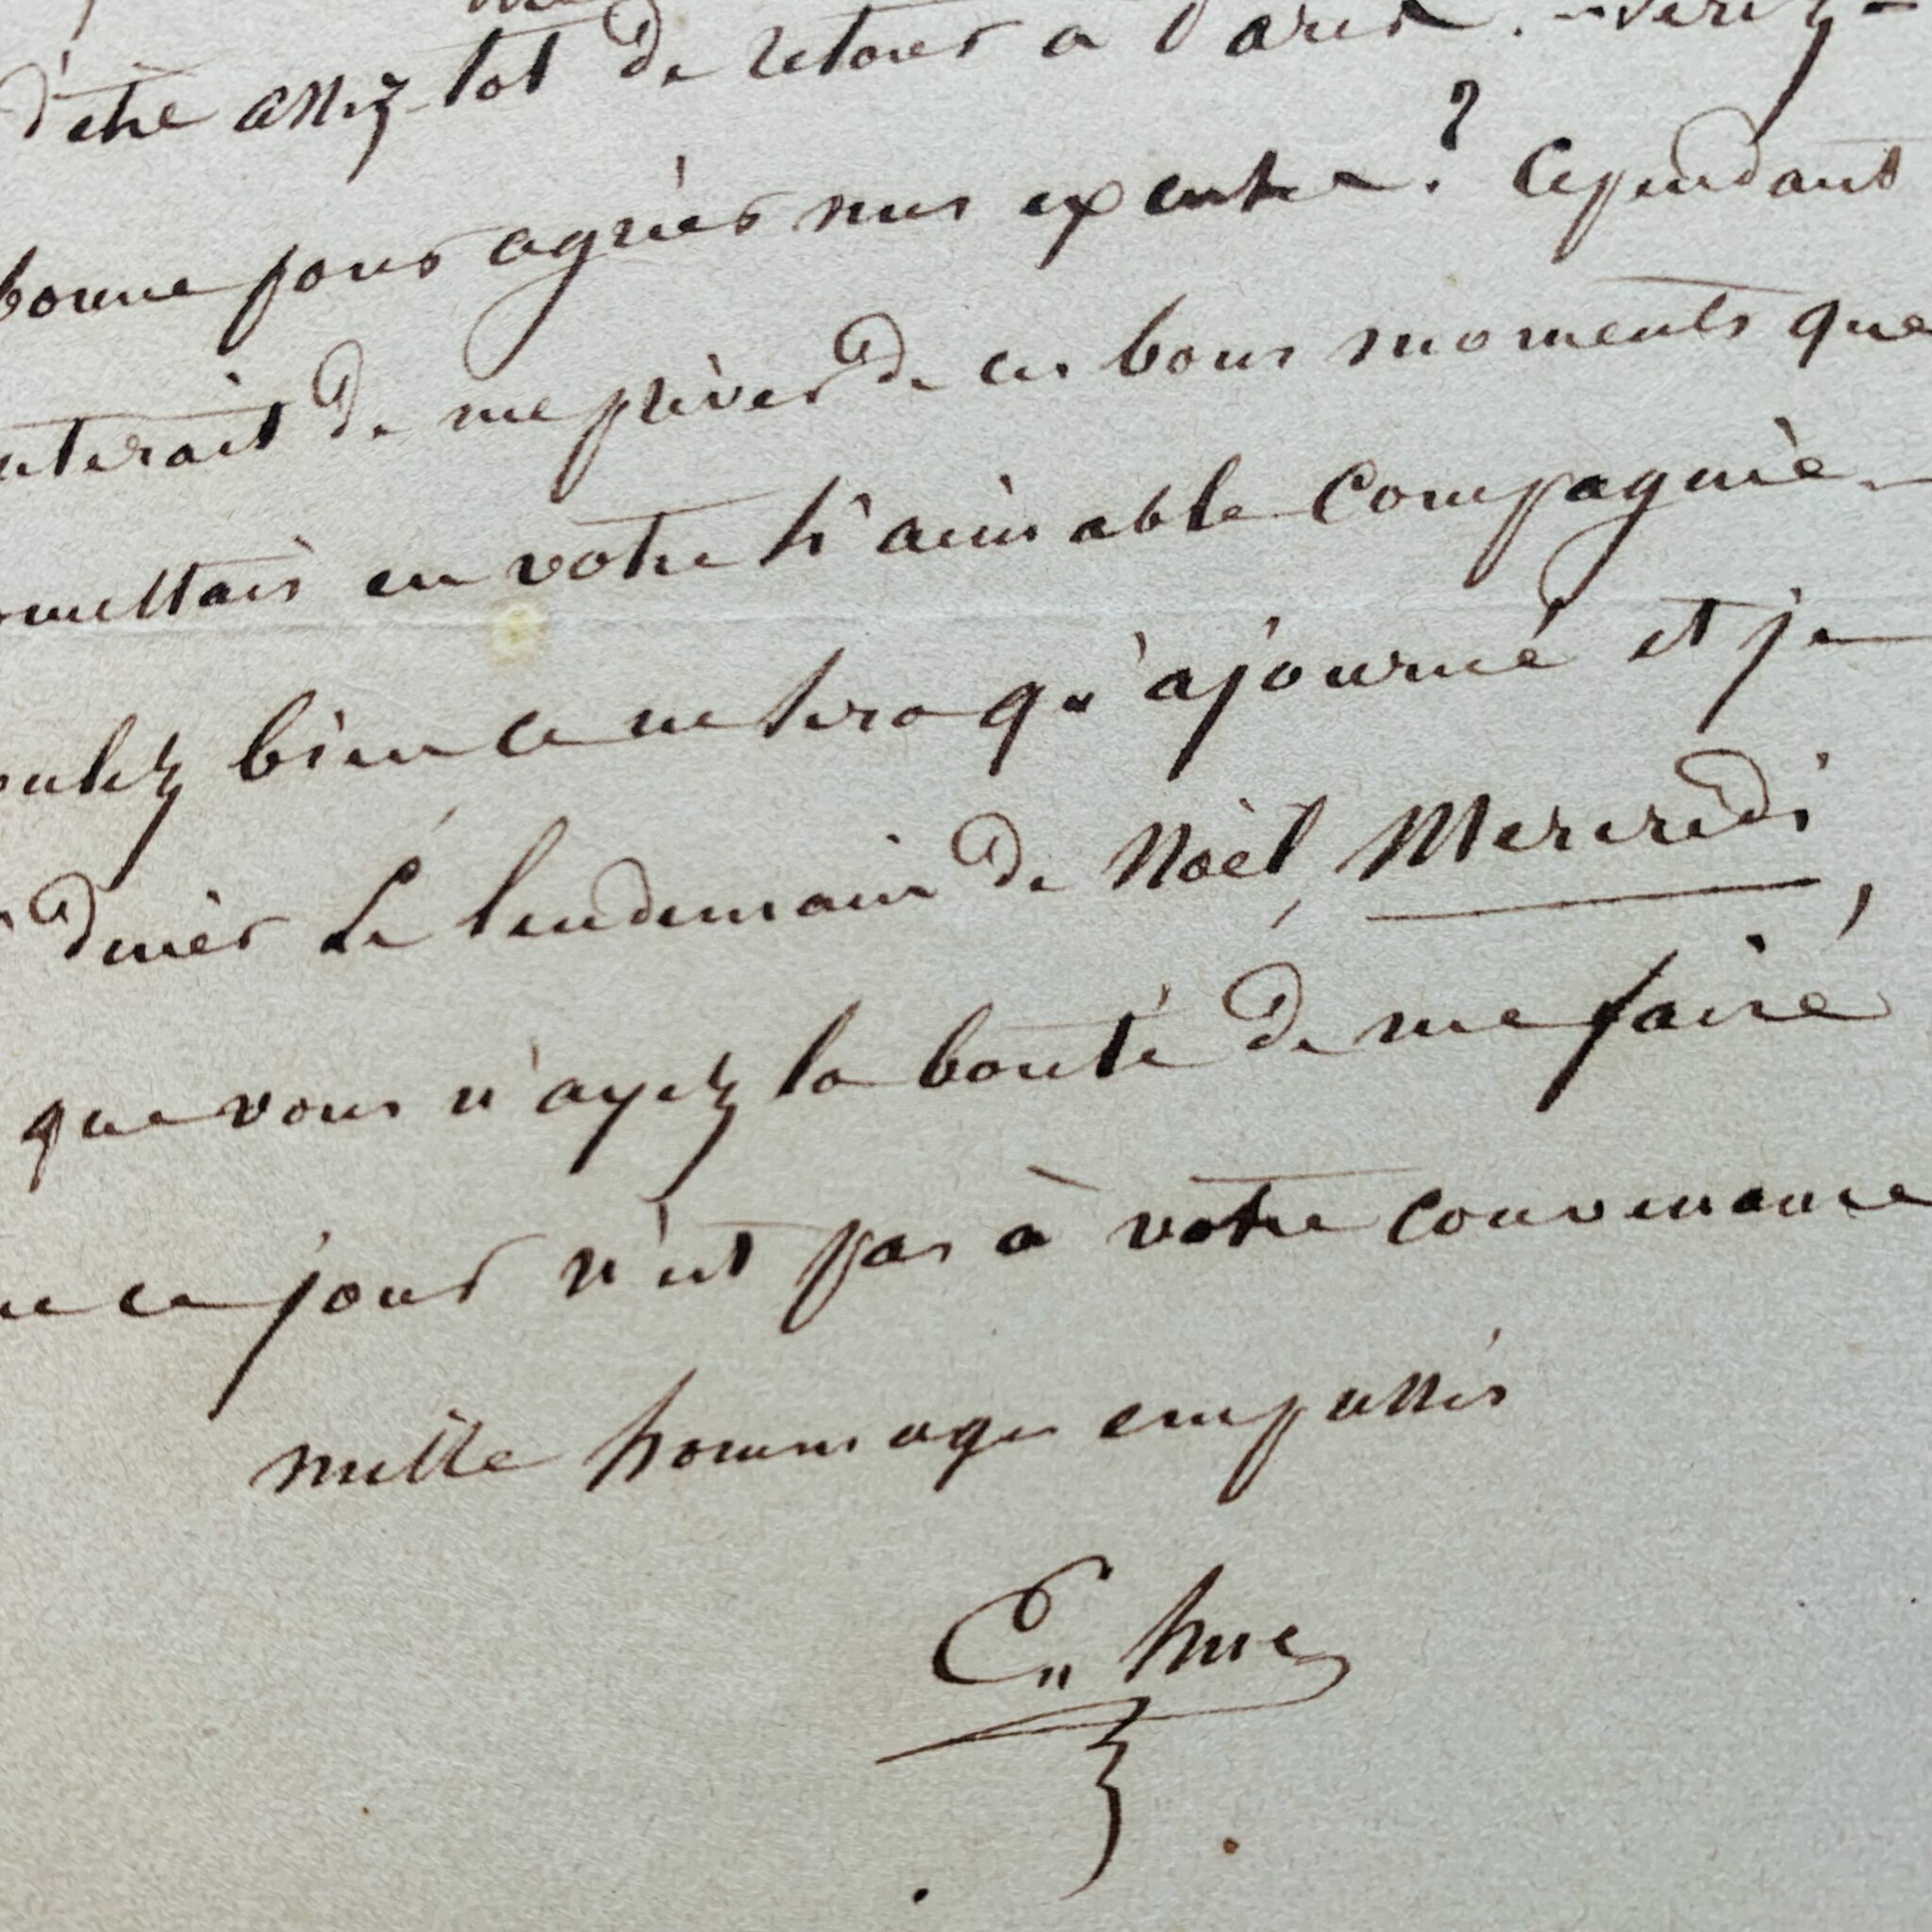 d'être assez tôt de retour à Paris. -serez-
bonne pour agréer mes excuses? Cependant
uterait de me priver de ces bons moments que
omettais en votre si aimable Compagnie -
oulez bien ce ne sera qu'ajourné et je
diner Le lendemain de Noël, Mercredi,
que vous n'ayez la bonté de me faire
ue ce jour n'est pas à votre convenance
mille hommages empressés